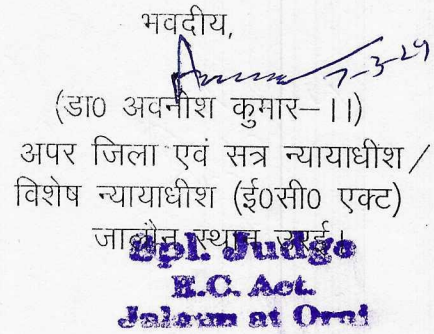 भवदीय,
7-3-24
(डा0 अवनीश कुमार–।।)
अपर जिला एवं सत्र न्यायाधीश /
विशेष न्यायाधीश (ई0सी0 एक्ट)
जालौन स्थान उरई।
Spl. Judge
E.C. Act.
Jalaun at Orai